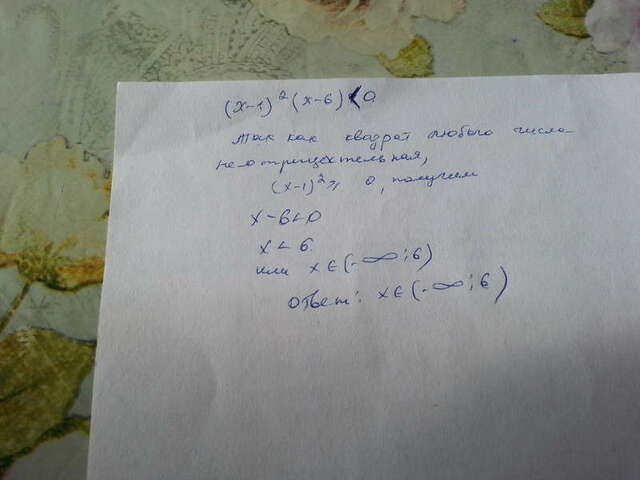 (x-1)² (x-6) < 0
Так как квадрат любого числа
неотрицательная,
(x-1)² ≥ 0, получим
x-6<0
x < 6
или x ∈ (-∞; 6)
ответ: x ∈ (-∞; 6)